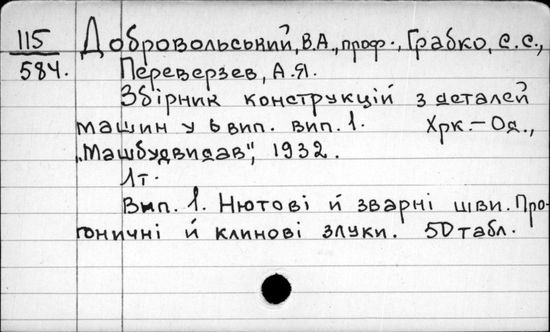 115 Добровольський, В.А., проф., Грабко, Є.Є.,
584. Переверзев, А.Я.
Збірник конструкцій з деталей
машин у 6 вип. вип. 1. Хрк.–Од.,
„Машбудвидав", 1932.
1т.
Вип. 1. Нютові й зварні шви. Про-
гоничні й клинові злуки. 50 табл.